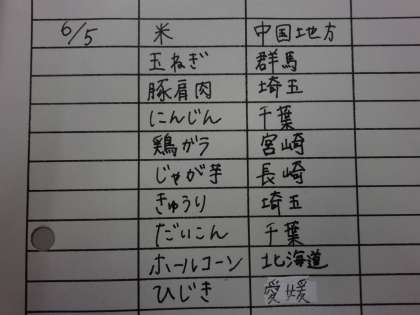 6/5 米 中国地方
玉ねぎ 群馬
豚肩肉 埼玉
にんじん 千葉
鶏ガラ 宮崎
じゃが芋 長崎
きゅうり 埼玉
だいこん 千葉
ホールコーン 北海道
ひじき 愛媛